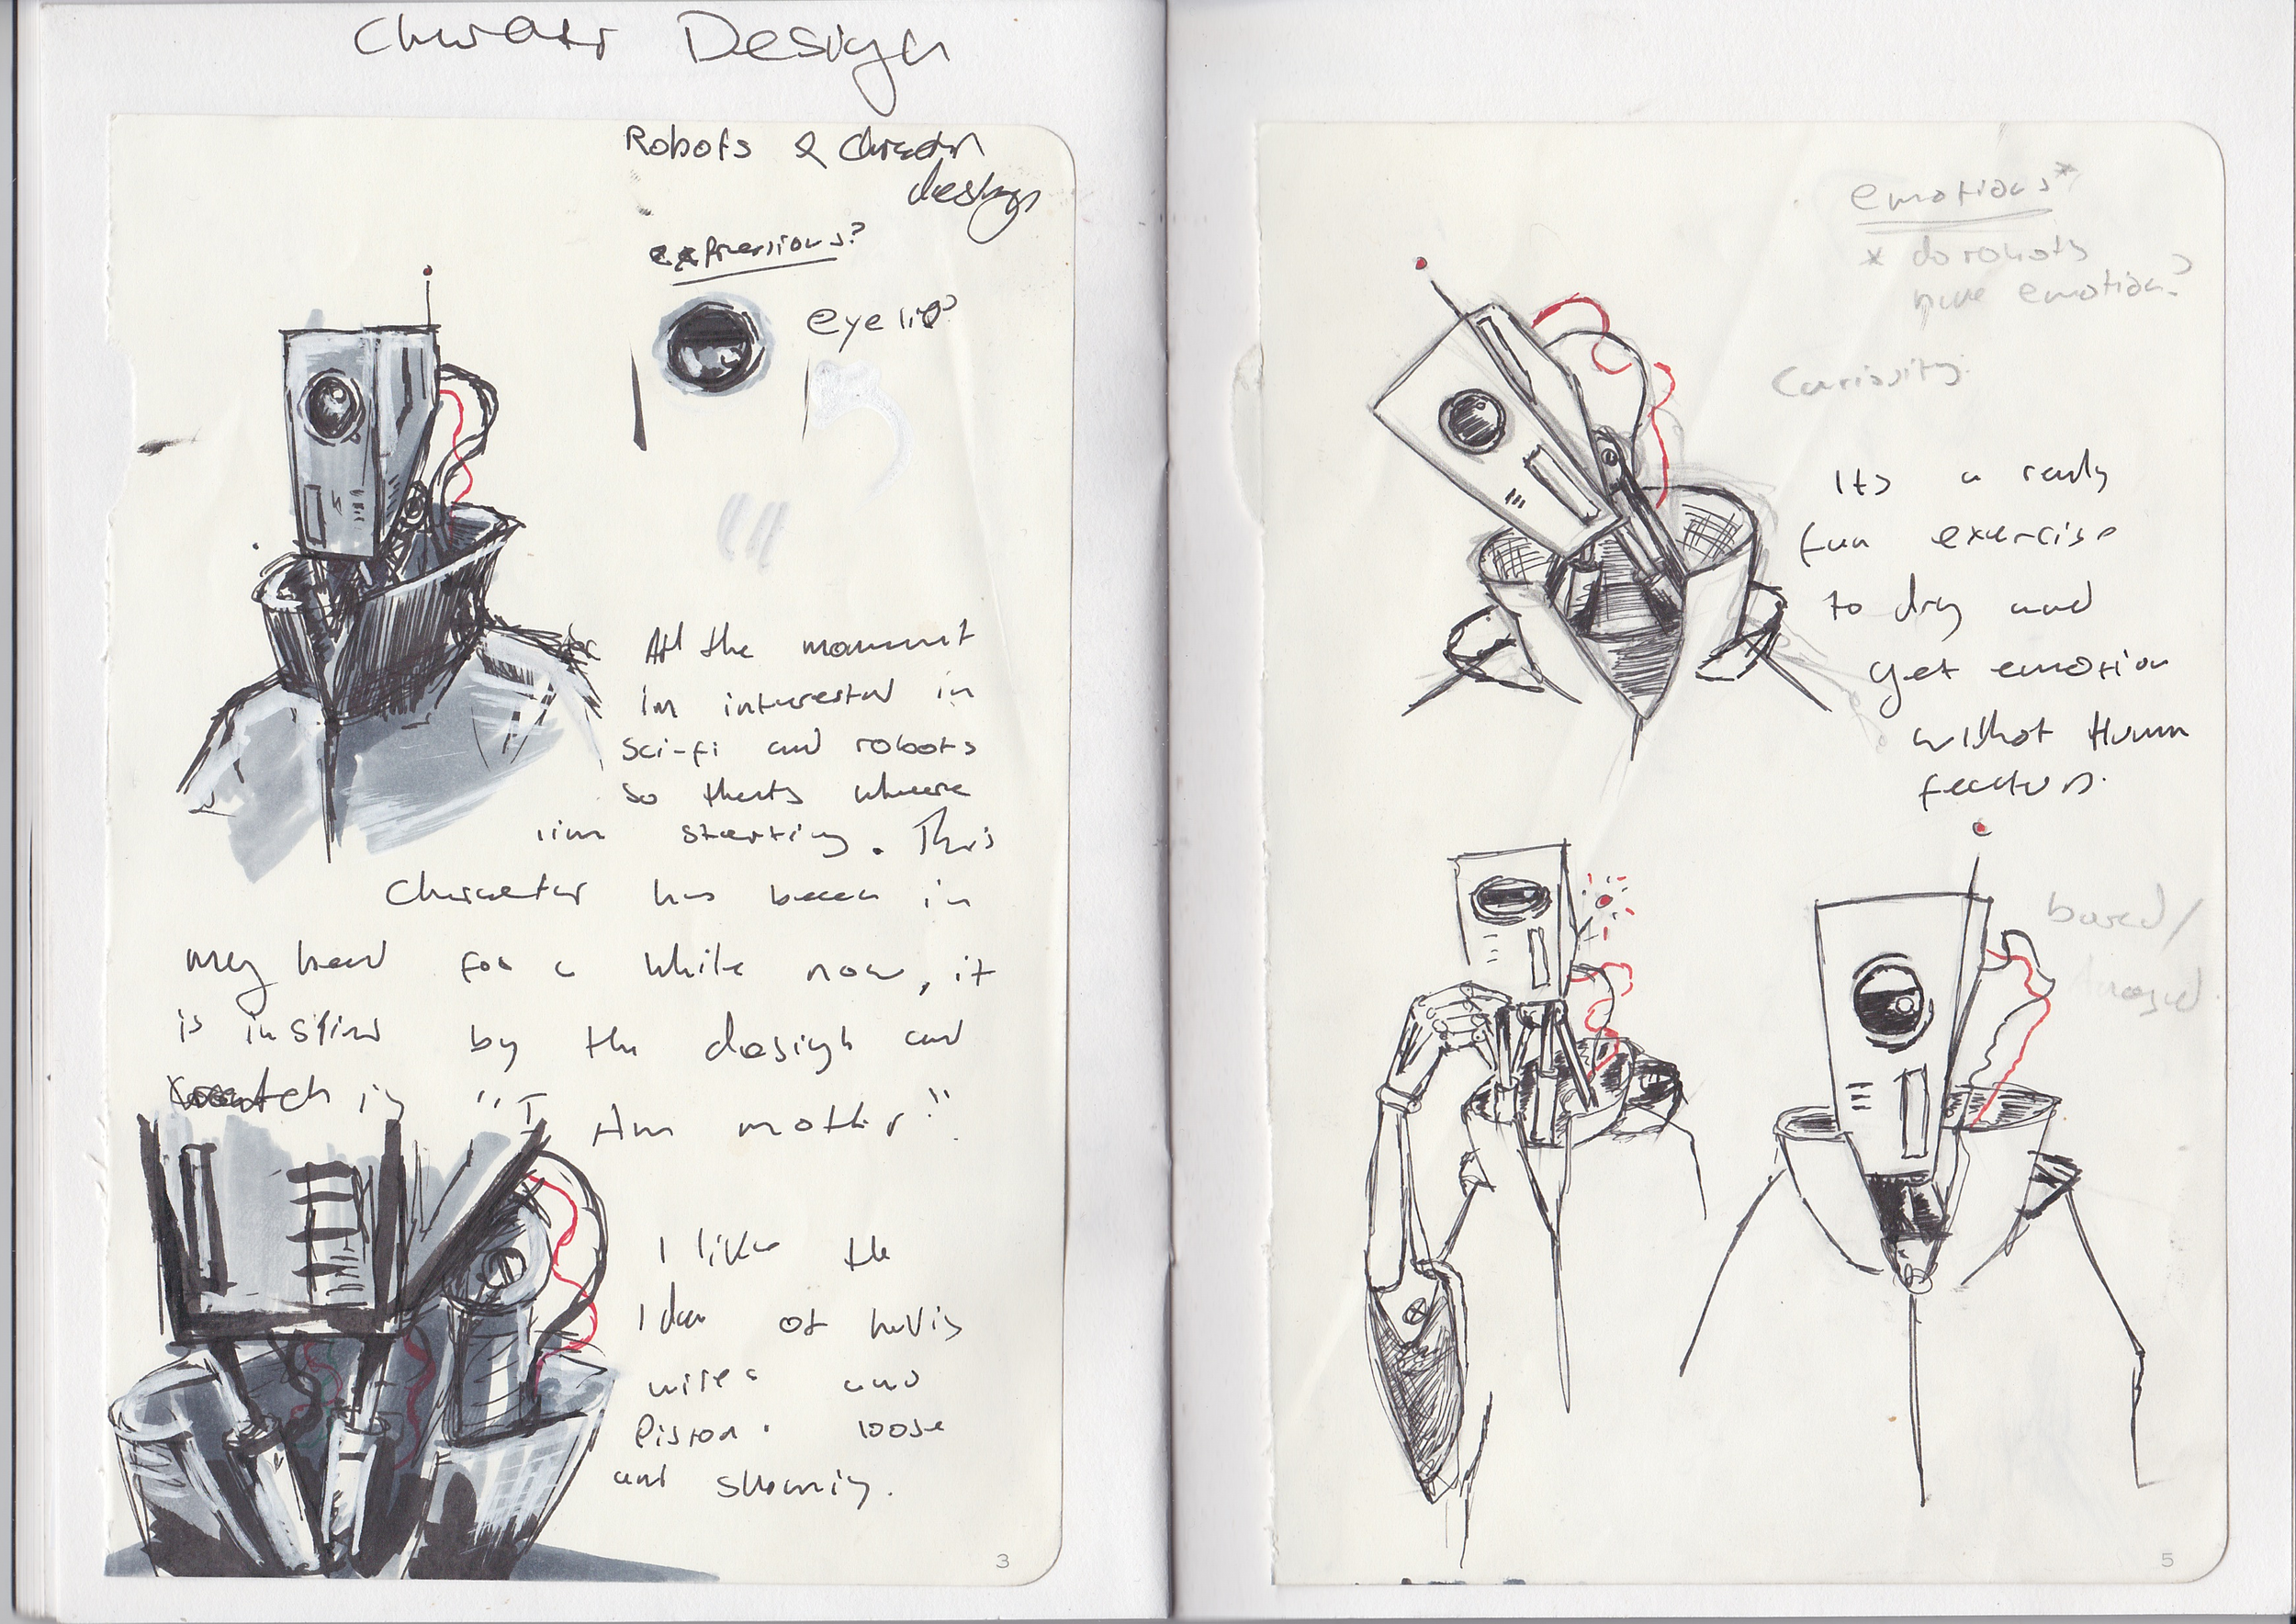 Character Design
Robots & character
design
expressions?
eye lid?
At the moment
im interested in
sci-fi and robots
so thats where
iim starting. This
Character has been in
my head for a while now, it
is inspired by the design and
in "I Am mother".
I like the
Idea of having
wires and
Piston. loose
and showing.
3
emotions*
* do robots
have emotion?
Curiosity.
Its a really
fun exercise
to dry and
get emotion
without Human
features.
bored/
5